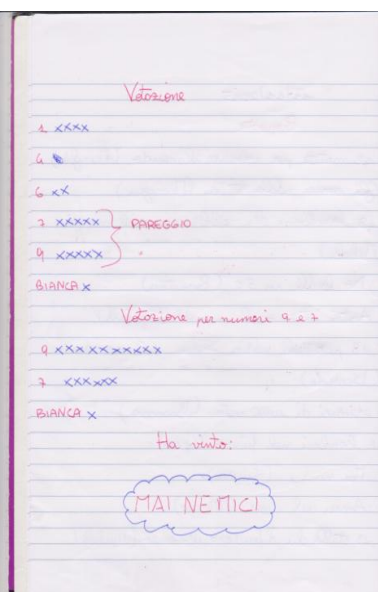 Votazione
1 xxxx
4
6 xx
7 xxxxx } PAREGGIO
9 xxxxx
BIANCA x
Votazione per numeri 9 e 7
9 xxxxxxxxxx
7 xxxxxx
BIANCA x
Ha vinto:
MAI NEMICI